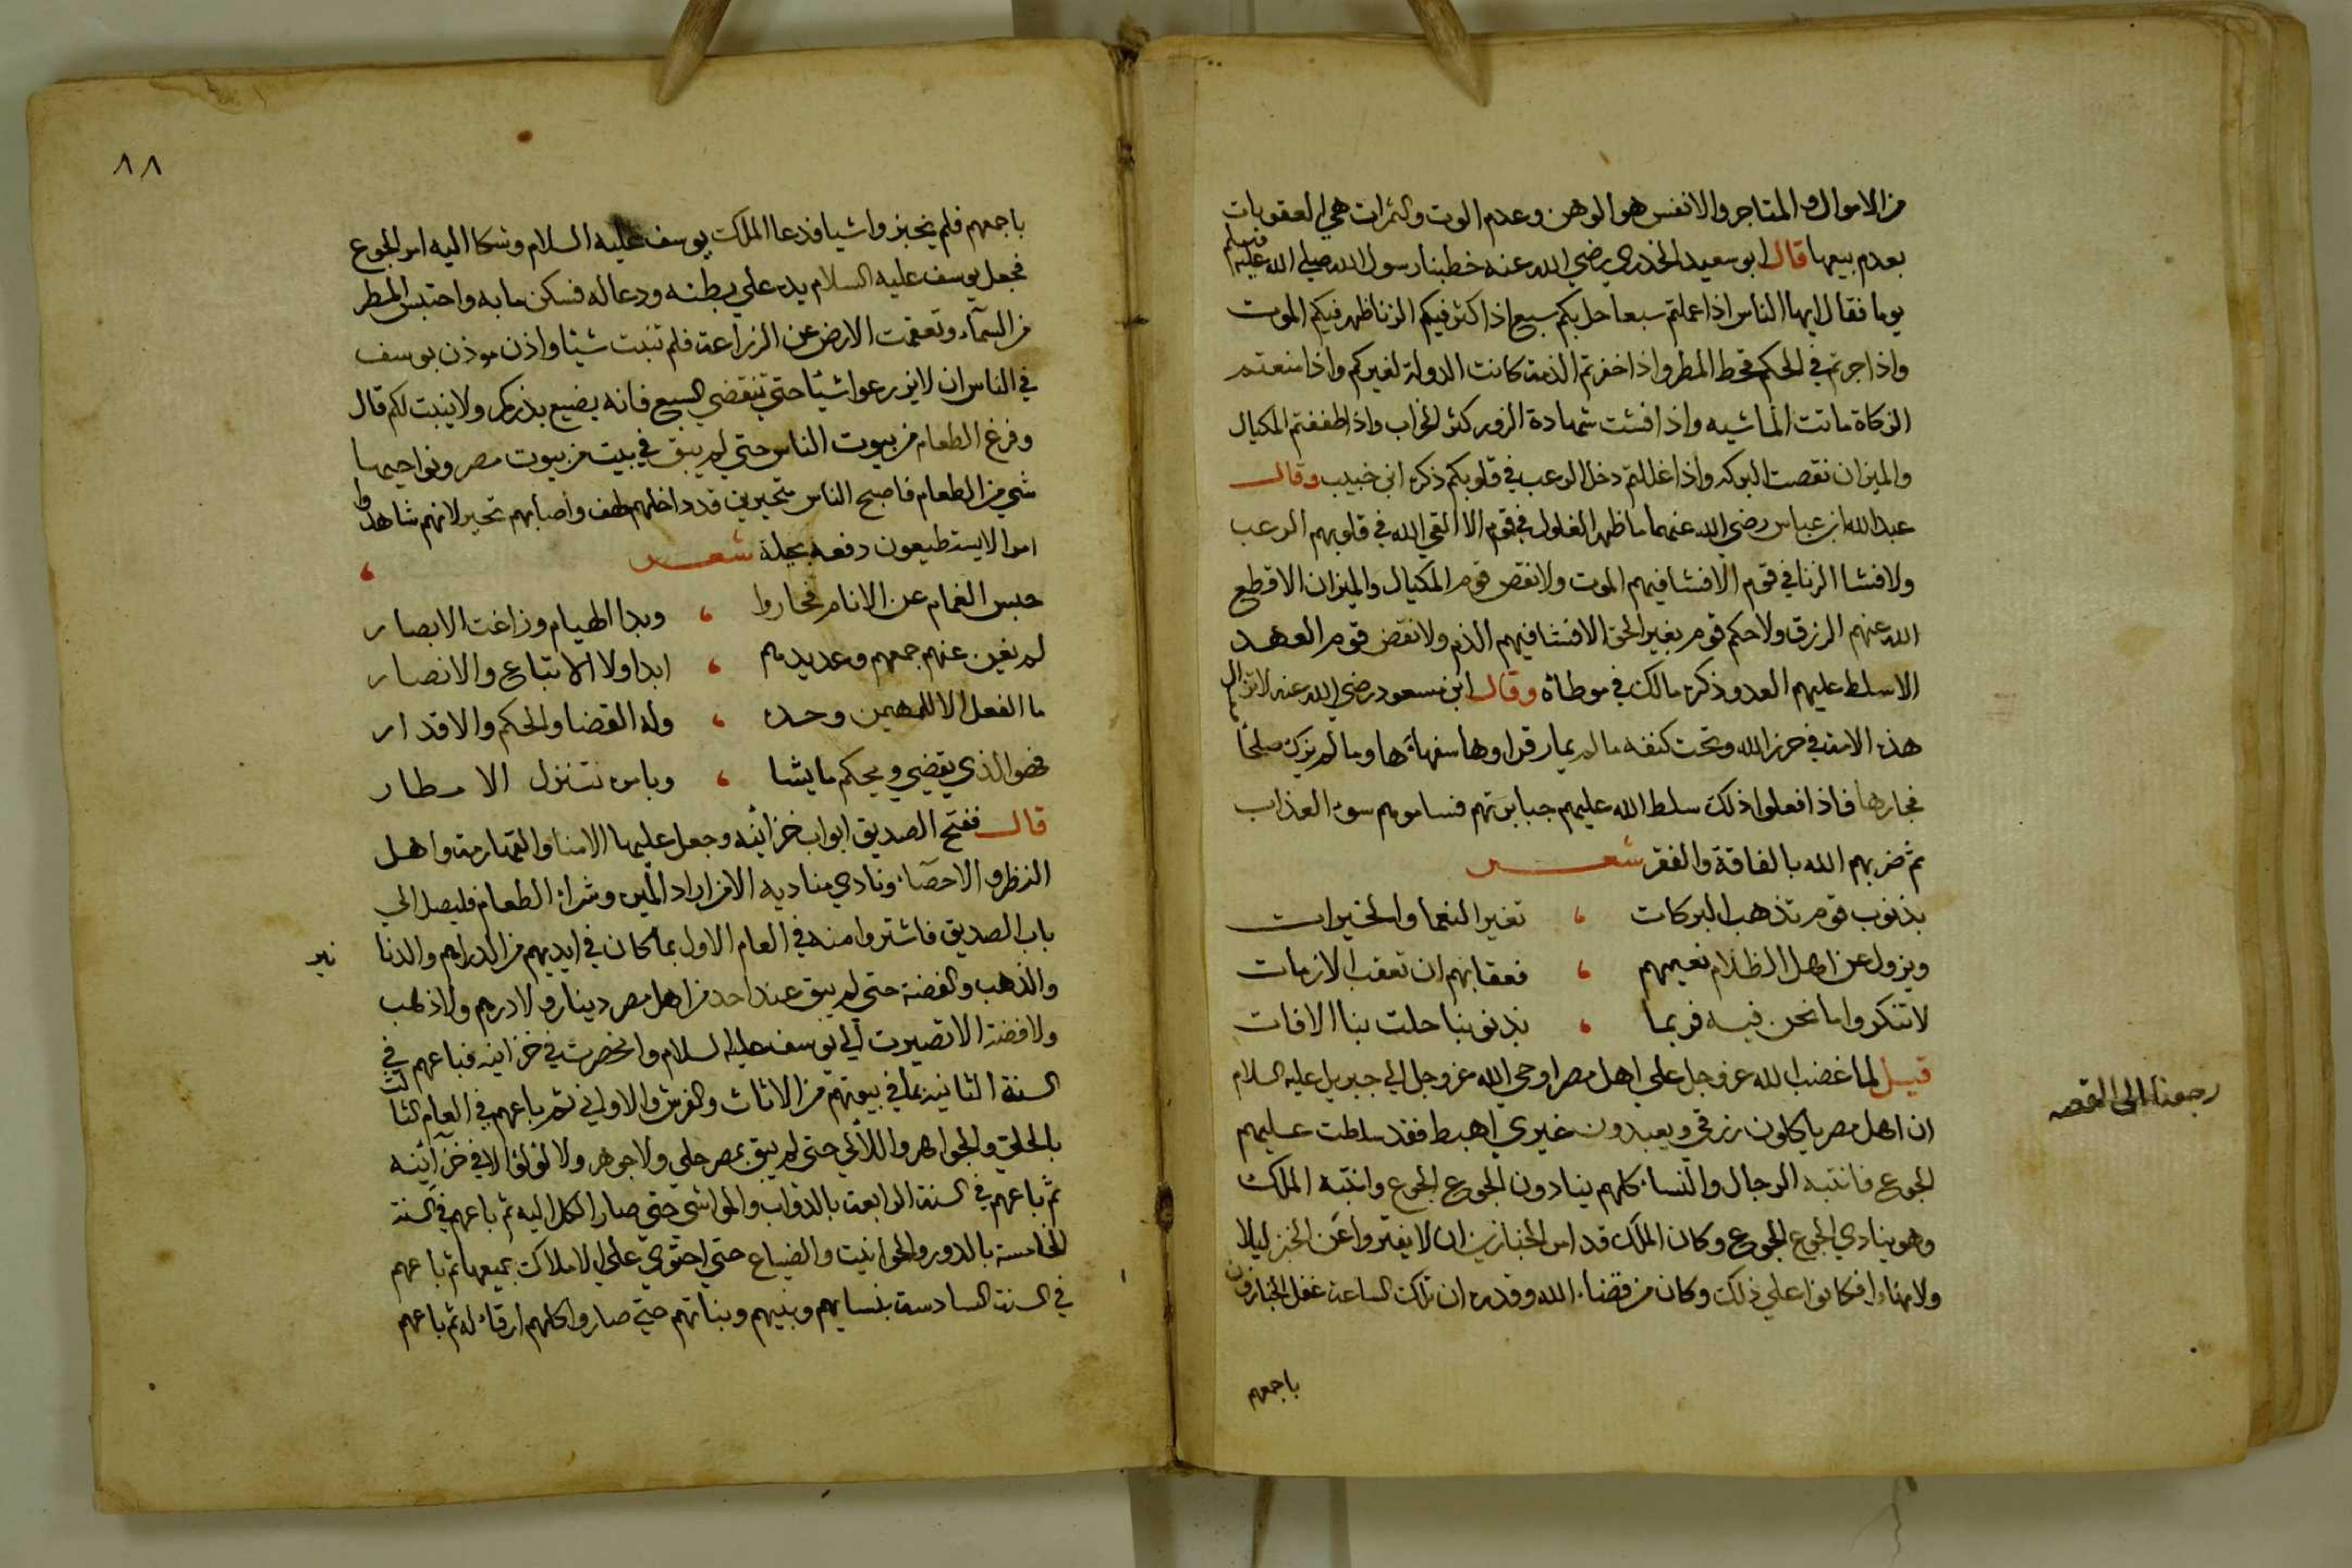 من الاموال والمتاجر والانفس هو الوهن وعدم الوت والثمرات هي العقوبات
بعدم بيعها قال ابو سعيد الخدري رضي الله عنه خطبنا رسول الله صلي الله عليه وسلم
يوما فقال ايها الناس اذا عملتم سبعا حل بكم سبع اذا كثر فيكم الزنا ظهر فيكم الموت
واذا جرتم في الحكم قحط المطر واذا اخفرتم الذمة كانت الدولة لغيركم واذا منعتم
الزكاة ماتت الماشيه واذا فشت شهادة الزور كثر الخراب واذا طففتم المكيال
والميزان نقصت البركه واذا غللتم دخل الرعب في قلوبكم ذكره ابن خبيب وقال
عبد الله ابن عباس رضي الله عنهما ما ظهر الغلول في قوم الا القي الله في قلوبهم الرعب
ولا فشا الزنا في قوم الا فشا فيهم الموت ولا نقص قوم المكيال والميزان الا قطع
الله عنهم الرزق ولا حكم قوم بغير الحق الا فشا فيهم الذم ولا نقض قوم العهد
الا سلط عليهم العدو ذكره مالك في موطاه وقال ابن مسعود رضي الله عنه لا تزال
هذه الامة في حرز الله وتحت كنفه ما لم يمار قراوها سفهاءها وما لم يزك صلحا
فجارها فاذا فعلوا ذلك سلط الله عليهم جبابرتهم فساموهم سوء العذاب
ثم ضربهم الله بالفاقة والفقر شعر
بذنوب قوم تذهب البركات ، تغير النعما والخيرات
ويزول عن اهل الظلام نعيمهم ، فعقابهم ان تعقب الازمات
لا تنكروا ما نحن فيه فربما ، بذنوبنا حلت بنا الافات
قيل لما غضب الله عز وجل علي اهل مصر اوحي الله عز وجل الي جبريل عليه السلام
رجعنا الى القصه
ان اهل مصر ياكلون رزقي ويعبدون غيري اهبط فقد سلطت عليهم
الجوع فانتبه الرجال والنساء كلهم ينادون الجوع الجوع وانتبه الملك
وهو ينادي الجوع الجوع وكان الملك قد امر الخبازين ان لا يفتروا عن الخبز ليلا
ولا نهارا فكانوا علي ذلك وكان من قضاء الله وقدره ان تلك الساعة غفل الخبازون
باجمعهم
٨٨
باجمعهم فلم يخبزوا شيا فدعا الملك يوسف عليه السلام وشكا اليه امر الجوع
فجعل يوسف عليه السلام يده علي بطنه ودعا له فسكن ما به واحتبس المطر
من السمآء وتعقمت الارض عن الزراعة فلم تنبت شيئا واذن موذن يوسف
في الناس ان لا يزرعوا شيئا حتي تنقضي السبع فانه يضيع بذركم ولا ينبت لكم قال
وفرغ الطعام من بيوت الناس حتي لم يبق في بيت من بيوت مصر ونواحيها
شي من الطعام فاصبح الناس متحيرين قد داخلهم لهف واصابهم تحير لانهم شاهدوا
امرا لا يستطيعون دفعه بحيلة شعر ،
حبس الغمام عن الانام فحاروا ، وبدا الهيام وزاغت الابصار
لم يغن عنهم جمعهم وعديدهم ، ابدا ولا الاتباع والانصار
ما الفعل الا للمهيمن وحده ، وله القضا والحكم والاقدار
فهو الذي يقضي ويحكم ما يشا ، وبامره تتنزل الامطار
قال ففتح الصديق ابواب خزائنه وجعل عليها الامنا والقهارمة واهل
النظر والاحصاء ونادي مناديه الا من اراد المير وشراء الطعام فليصل الي
باب الصديق فاشتروا منه في العام الاول بما كان في ايديهم من الدراهم والدنا نير
والذهب والفضة حتي لم يبق عند احد من اهل مصر دينار ولا درهم ولا ذهب
ولا فضة الا تصيرت الي يوسف عليه السلام وانحضرت في خزاينه فباعهم في
السنة الثانية بما في بيوتهم من الاثاث والفرش والاواني ثم باعهم في العام الثالث
بالحلي والجواهر واللآلي حتي لم يبق بمصر حلي ولا جوهر ولا لؤلؤ الا في خزآئنه
ثم باعهم في السنة الرابعة بالدواب والمواشي حتي صار الكل اليه ثم باعهم في السنة
الخامسة بالدور والحوانيت والضياع حتي احتوي علي الاملاك جميعها ثم باعهم
في السنة السادسة بنسايهم وبنيهم وبناتهم حتي صاروا كلهم ارقاء له ثم باعهم